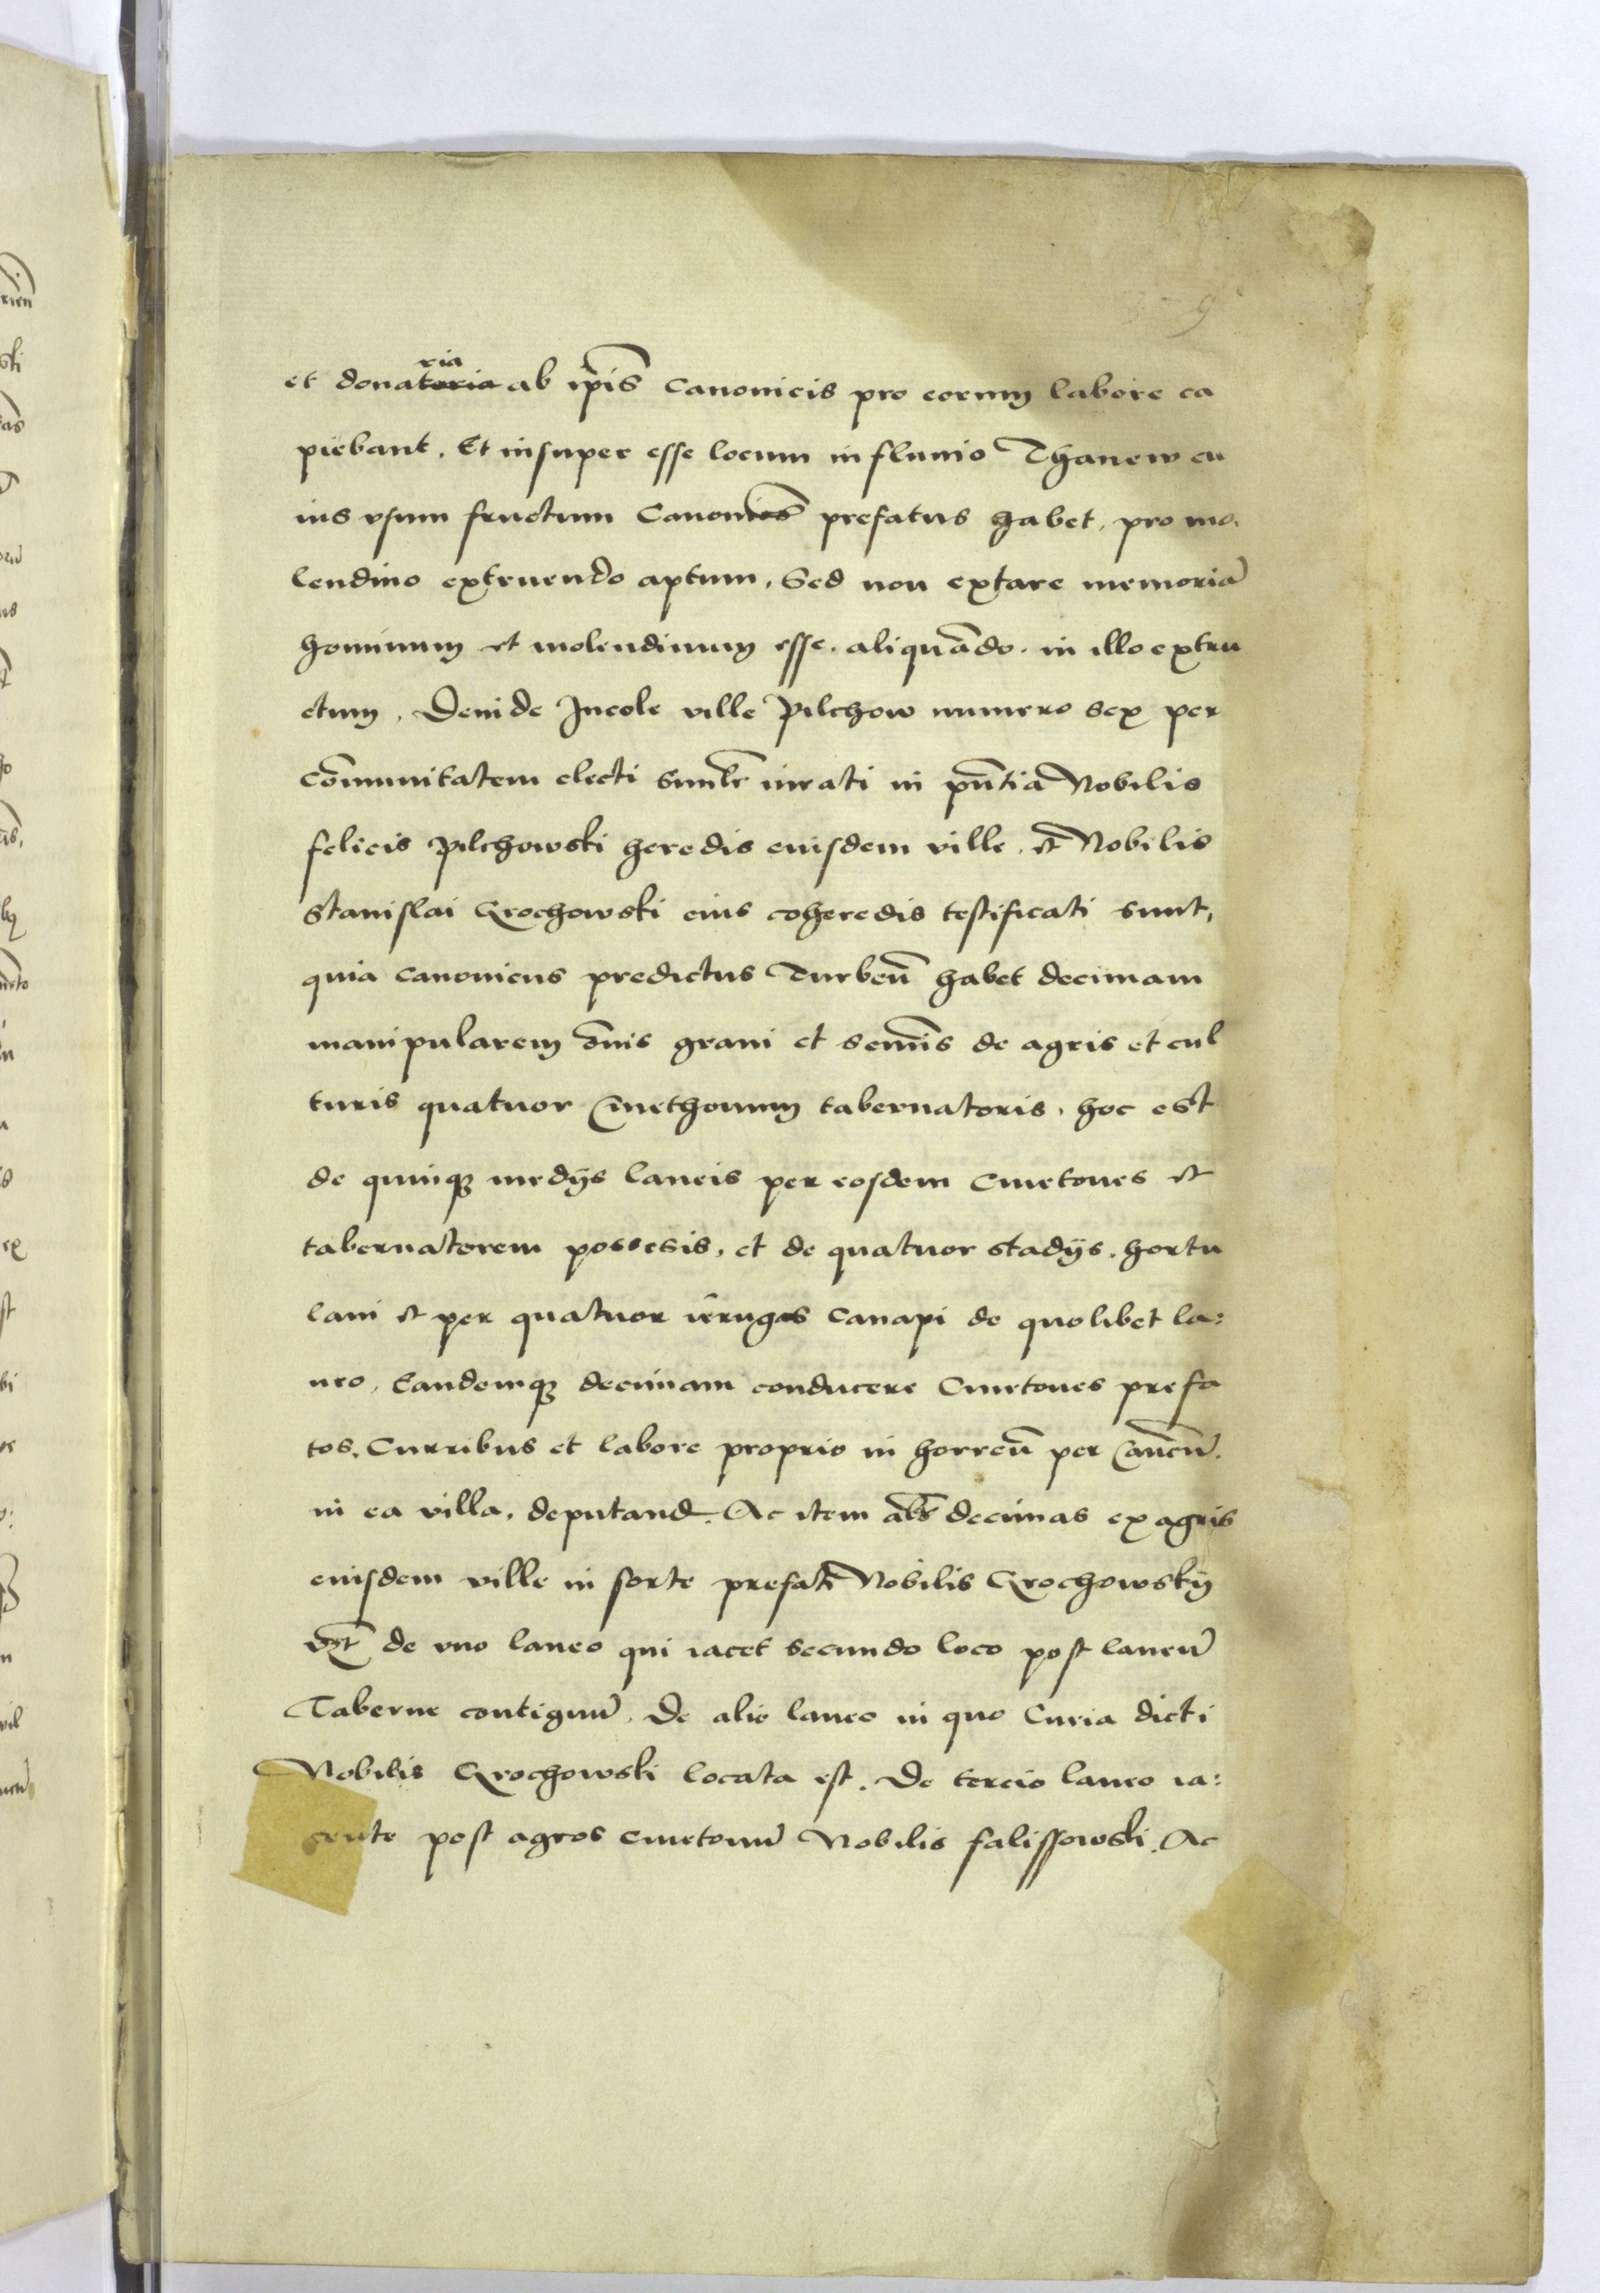 et dona toria ria ab ip̄is Canonicis pro eorum labore ca
piebant. Et insuper esse locum in fluuio Thanew cu
ius vsum fructum Canonicus prefatus habet, pro mo,
lendino extruendo aptum, Sed non extare memoriā
hominum et molendinum esse aliquādo in illo extru
ctum. Deinde Incole ville Pilchow numero sex per
cōmunitatem electi simlr iurati in pn̄tia Nobilis
felicis Pilchowski heredis eiusdem ville, et Nobilis
Stanislai Grochowski eius coheredis testificati sunt,
quia canonicus predictus Turbeñ habet decimam
manipularem om̄is grani et semīs de agris et cul
turis quatuor Cmethonum tabernatoris, hoc est
de quinqꝫ medijs laneis per eosdem Cmetones et
tabernatorem possesis, et de quatuor stadijs hortu
lani et per quatuor ierugas Canapi de quolibet la:
neo, Eandemqꝫ decimam conducere Cmetones prefa
tos, Curribus et labore proprio in horreū per Cancū
in ea villa, deputand. Ac item als decimas ex agris
eiusdem ville in sorte prefati Nobilis Grochowskij
vꝫt de vno laneo qui iacet secundo loco post laneū
Taberne contiguū, De alio laneo in quo Curia dicti
Nobilis Grochowski locata est. De tercio laneo ia:
cente post agros cmetonū Nobilis falissowski. Ac